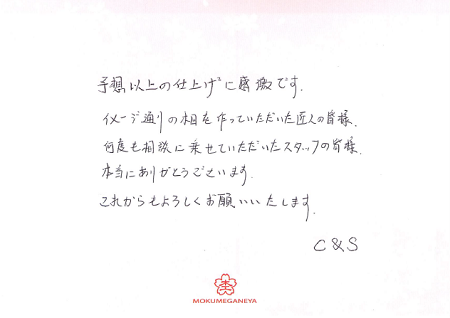 予想以上の仕上げに感激です.
イメージ通りの木目を作っていただいた匠人の皆様.
何度も相談に乗せていただいたスタッフの皆様.
本当にありがとうございます.
これからもよろしくお願いいたします.
C & S
MOKUMEGANEYA